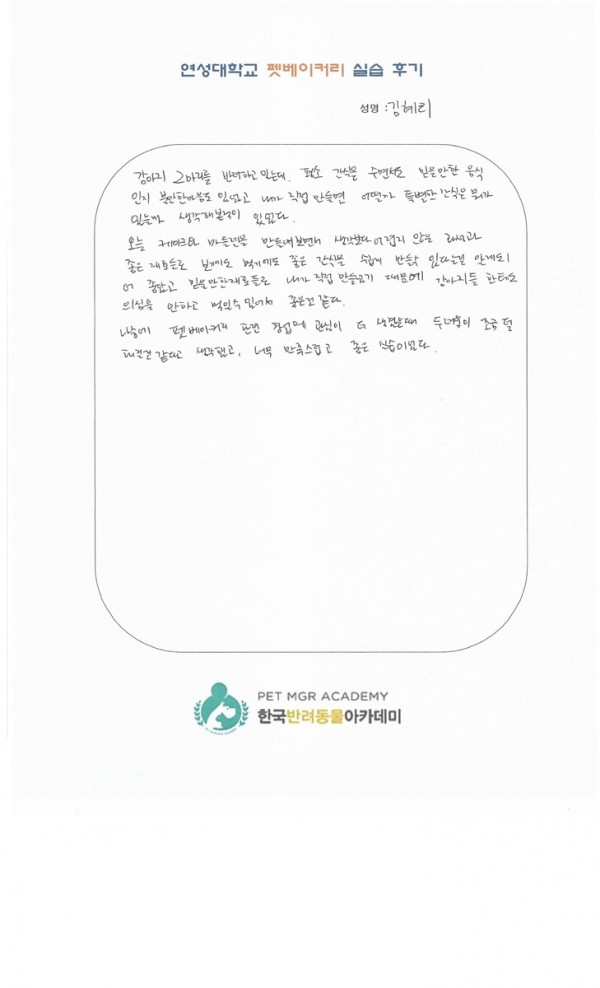 연성대학교 펫베이커리 실습 후기
성명 : 김혜리
강아지 2마리를 반려하고 있는데, 평소 간식을 주면서도 믿을만한 음식
인지 불안한마음도 있었고 내가 직접 만들면 어떨까 특별한 간식은 뭐가
있을까 생각해본적이 있었다.
오늘 케이크와 만들어보면서 생각보다 어렵지 않은 레시피과
좋은 재료들로 보기에도 먹기에도 좋은 간식을 쉽게 만들수 있다는걸 알게되
어 좋았고 믿을만한재료들로 내가 직접 만들었기 때문에 강아지들 한테도
의심을 안하고 먹일수 있어서 좋은것 같다.
나중에 펫베이커리 관련 창업에 관심이 더 생겼을때 두려움이 조금 덜
해질것 같다고 생각했고, 너무 만족스럽고 좋은 실습이었다.
PET MGR ACADEMY
한국반려동물아카데미